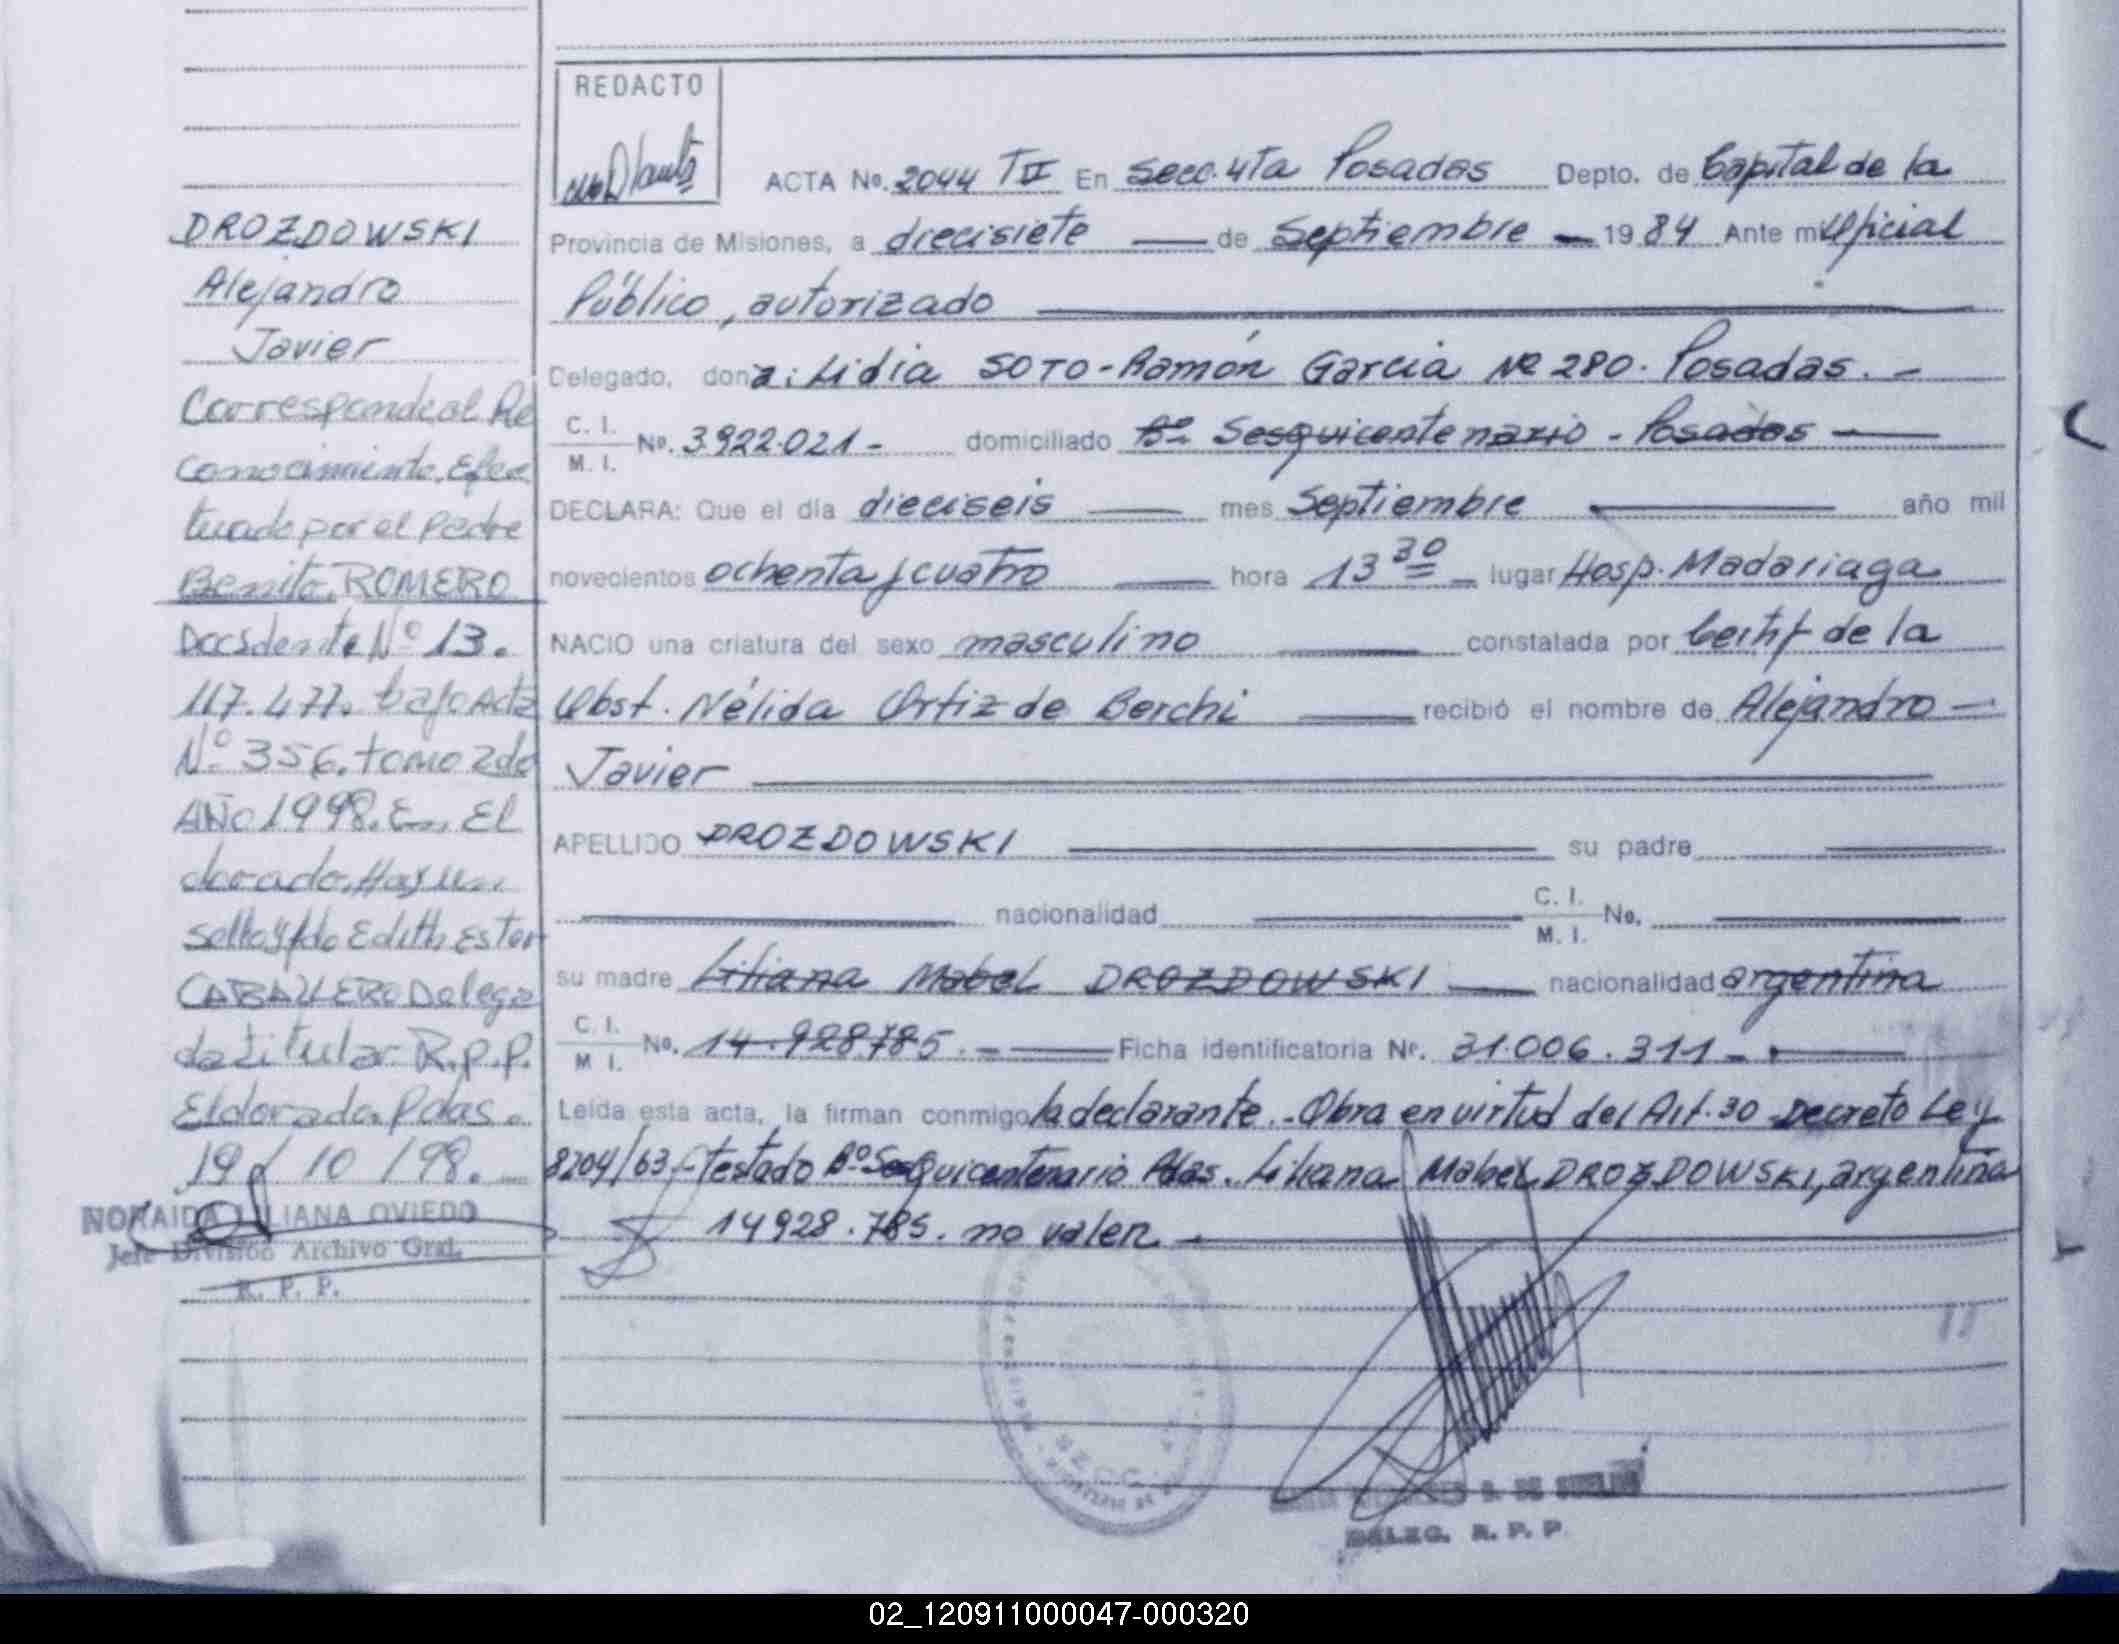 REDACTO
ACTA No. 2044 TII En Secc. 4ta Posadas Depto. de Capital de la
Provincia de Misiones, a diecisiete de Septiembre 1984 Ante mi Oficial
Público, autorizado
Delegado, dona: Lidia SOTO - Ramón Garcia Nº 280. Posadas. -
C. I.
M. I.
No. 3.922.021 - domiciliado Bº Sesquicentenario - Posadas
DECLARA: Que el día dieciseis mes Septiembre año mil
novecientos ochenta y cuatro hora 13 30 lugar Hosp. Madariaga
NACIO una criatura del sexo masculino constatada por Certif de la
Obst. Nélida Ortiz de Berchi recibió el nombre de Alejandro -
Javier
APELLIDO DROZDOWSKI su padre
nacionalidad C. I. M. I. No.
su madre Liliana Mabel DROZDOWSKI nacionalidad argentina
C. I.
M. I.
No. 14.928.785. - Ficha identificatoria Nº. 31.006.311 -
Leída esta acta, la firman conmigo la declarante. - Obra en virtud del Art. 30 Decreto Ley
8204/63 - testado Bº Sesquicentenario Pdas. Liliana Mabel DROZDOWSKI, argentina
14928.785. no valen -
DROZDOWSKI
Alejandro
Javier
Corresponde al Re
conocimiento. Efec
tuado por el Padre
Benito. ROMERO
Nº 13.
117.477. bajo Acta
Nº 356. tomo 2do
AÑO 1998. En. El
dorado. Hay un
sello y fdo Edith Ester
CABALLERO Delega
da titular R.P.P.
Eldorado. Pdas.
19 / 10 / 98.
NORAIDA LILIANA OVIEDO
Jefe División Archivo Gral.
R. P. P.
DELEG. R. P. P.
02_120911000047-000320